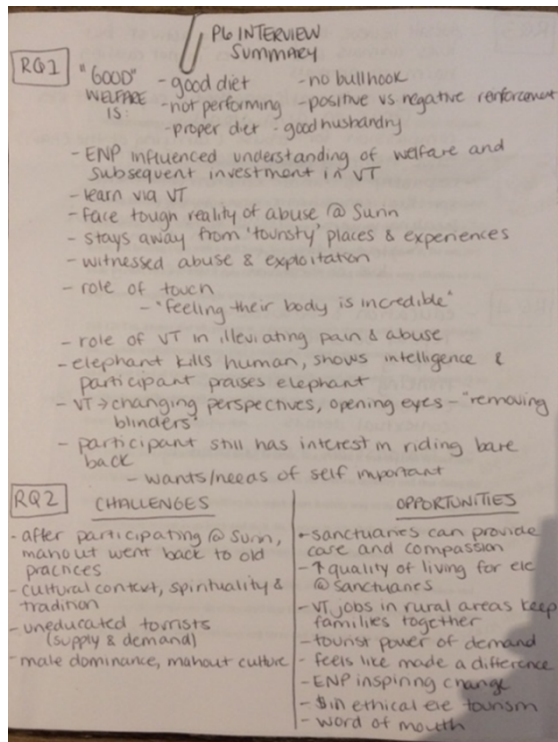 P6 INTERVIEW
SUMMARY
RQ1
"GOOD"
WELFARE
IS:
- good diet - no bullhook
- not performing - positive vs negative reinforcement
- proper diet - good husbandry
- ENP influenced understanding of welfare and
subsequent investment in VT
- learn via VT
- face tough reality of abuse @ Surin
- stays away from 'touristy' places & experiences
- witnessed abuse & exploitation
- role of touch
- "feeling their body is incredible"
- role of VT in illeviating pain & abuse
- elephant kills human, shows intelligence &
participant praises elephant
- VT → changing perspectives, opening eyes - "removing
blinders"
- participant still has interest in riding bare
back
- wants/needs of self important
RQ2
CHALLENGES
- after participating @ Surin,
mahout went back to old
practices
- cultural context, spirituality &
tradition
- uneducated tourists
(supply & demand)
- male dominance, mahout culture
OPPORTUNITIES
- sanctuaries can provide
care and compassion
- ↑ quality of living for ele
@ sanctuaries
- VT jobs in rural areas keep
families together
- tourist power of demand
- feels like made a difference
- ENP inspiring change
- $ in ethical ele tourism
- word of mouth